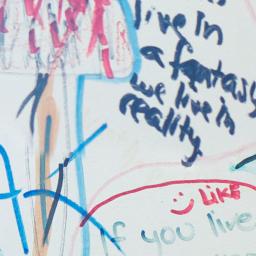 live in
a fantasy
we live in
reality
LIKE
if you live